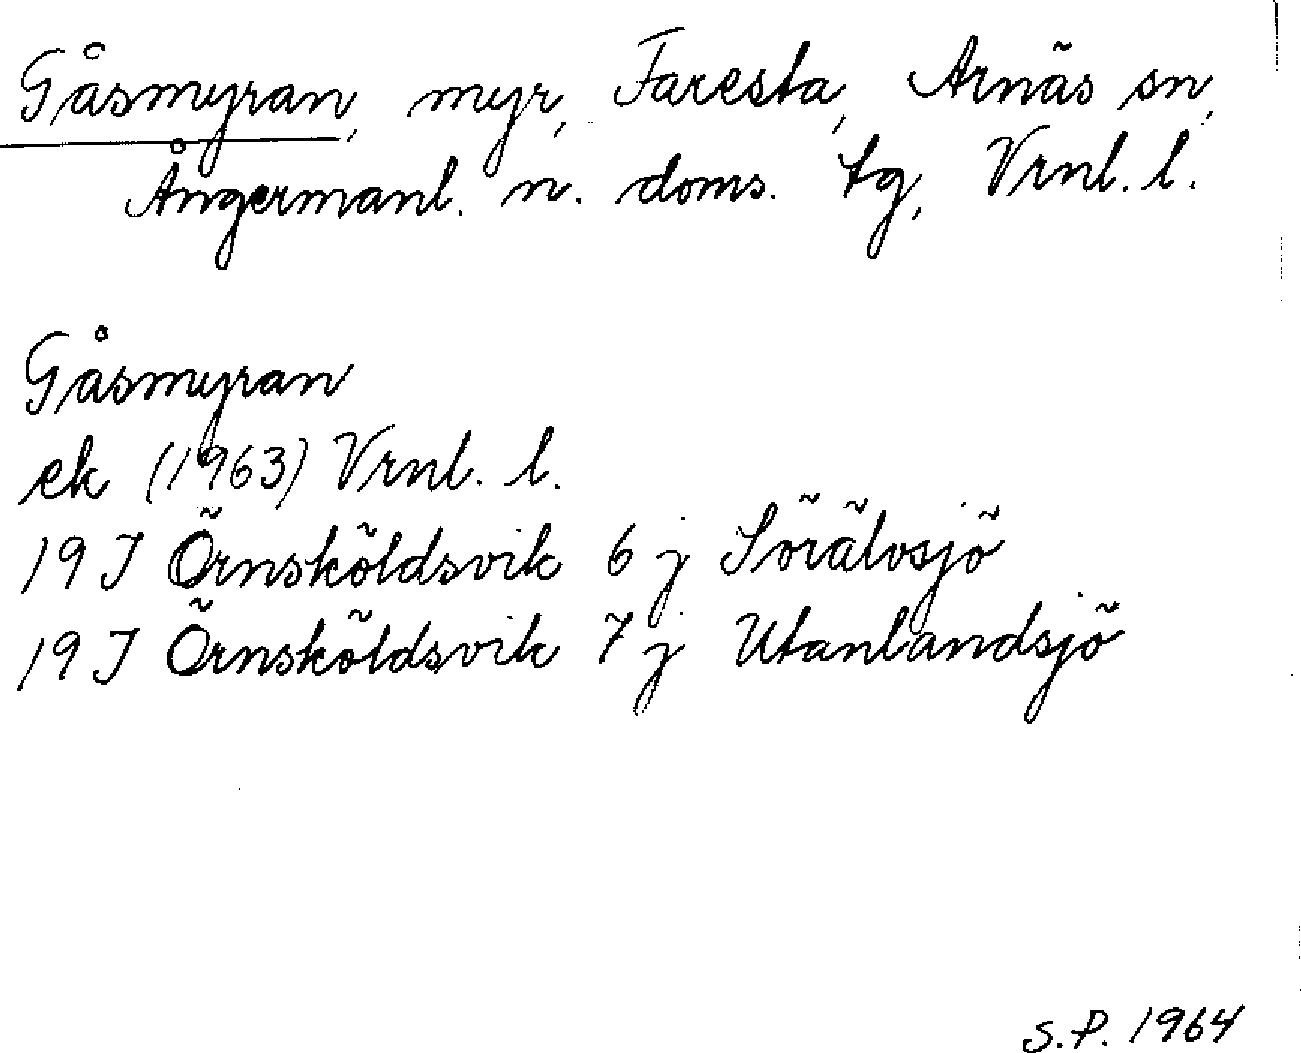 Gåsmyran, myr, Faresta, Arnäs sn,
Ångermanl. n. doms. tg, Vrnl. l.
Gåsmyran
ek (1963) Vrnl. l.
19 J Örnsköldsvik 6 j Sörälvsjö
19 J Örnsköldsvik 7 j Utanlandsjö
S.P. 1964